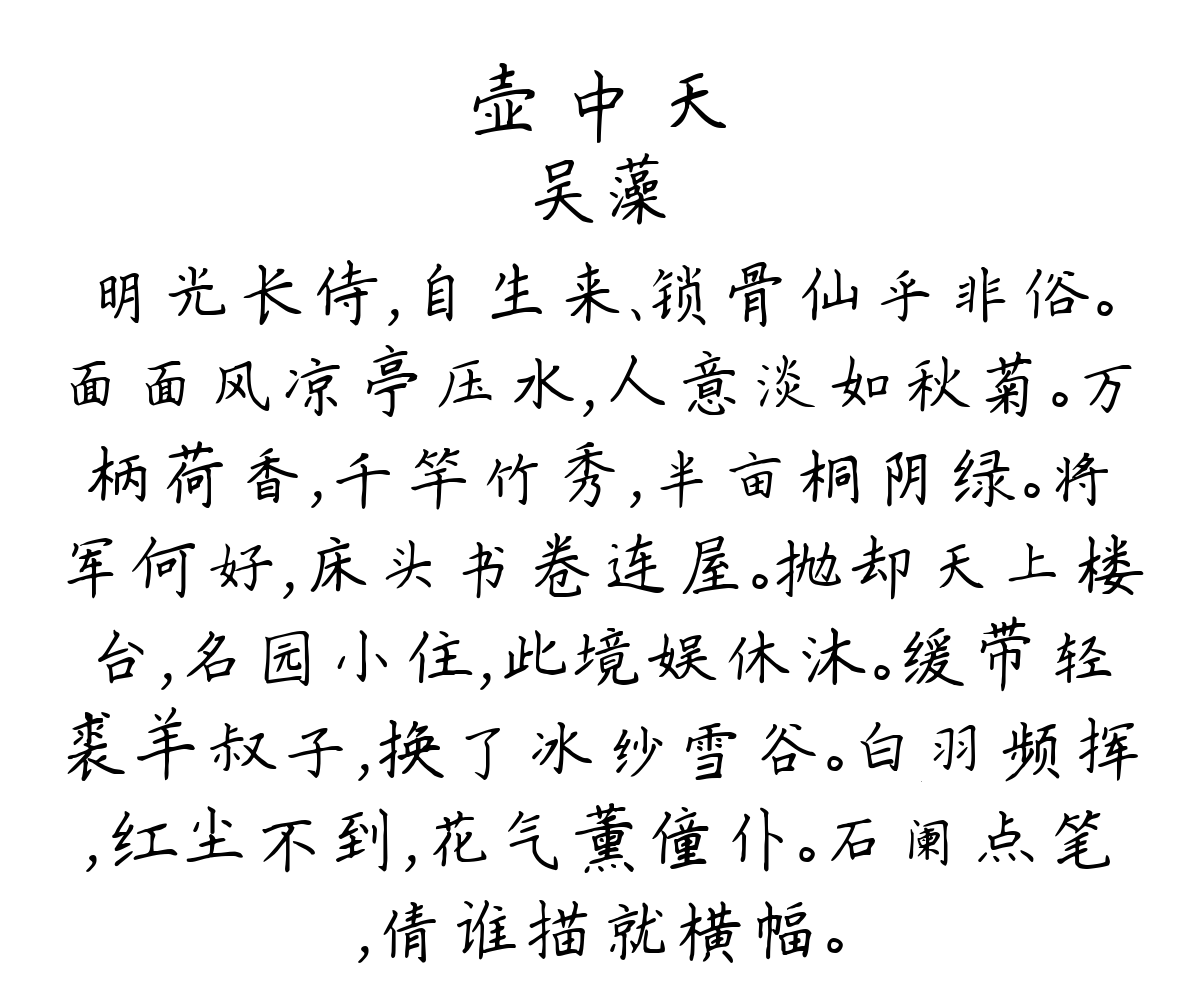 壶中天
吴藻
明光长侍,自生来、锁骨仙乎非俗。
面面风凉亭压水,人意淡如秋菊。万
柄荷香,千竿竹秀,半亩桐阴绿。将
军何好,床头书卷连屋。抛却天上楼
台,名园小住,此境娱休沐。缓带轻
裘羊叔子,换了冰纱雪谷。白羽频挥
,红尘不到,花气薰僮仆。石阑点笔
,倩谁描就横幅。